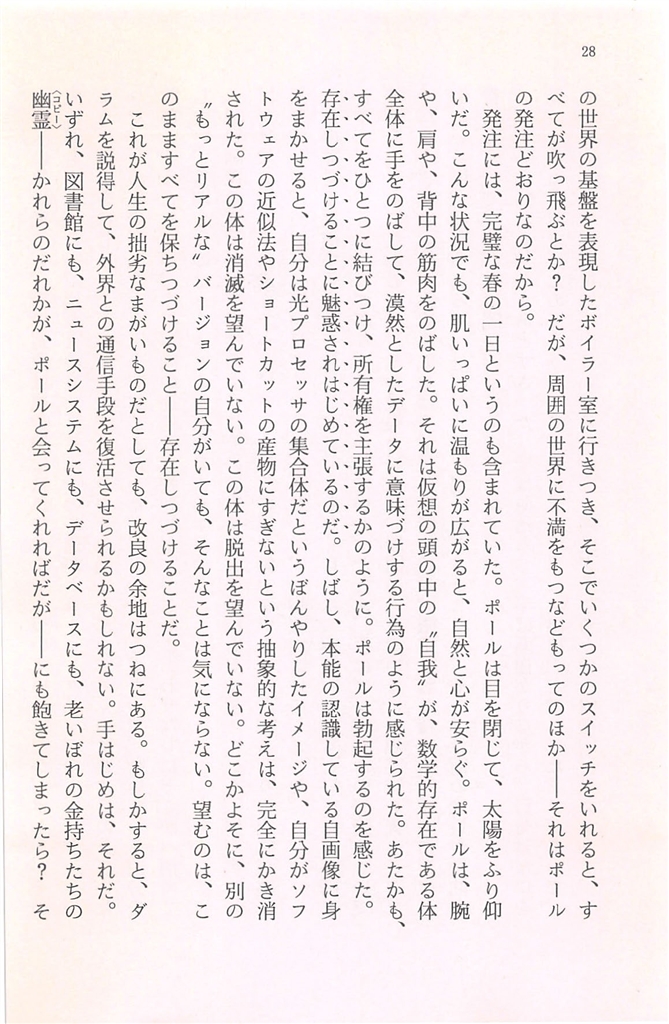 28
の世界の基盤を表現したボイラー室に行きつき、そこでいくつかのスイッチをいれると、す
べてが吹っ飛ぶとか？　だが、周囲の世界に不満をもつなどもってのほか――それはポール
の発注どおりなのだから。
　発注には、完璧な春の一日というのも含まれていた。ポールは目を閉じて、太陽をふり仰
いだ。こんな状況でも、肌いっぱいに温もりが広がると、自然と心が安らぐ。ポールは、腕
や、肩や、背中の筋肉をのばした。それは仮想の頭の中の〝自我〟が、数学的存在である体
全体に手をのばして、漠然としたデータに意味づけする行為のように感じられた。あたかも、
すべてをひとつに結びつけ、所有権を主張するかのように。ポールは勃起するのを感じた。
存在しつづけることに魅惑されはじめているのだ。しばし、本能の認識している自画像に身
をまかせると、自分は光プロセッサの集合体だというぼんやりしたイメージや、自分がソフ
トウェアの近似法やショートカットの産物にすぎないという抽象的な考えは、完全にかき消
された。この体は消滅を望んでいない。この体は脱出を望んでいない。どこかよそに、別の
〝もっとリアルな〟バージョンの自分がいても、そんなことは気にならない。望むのは、こ
のまますべてを保ちつづけること――存在しつづけることだ。
　これが人生の拙劣なまがいものだとしても、改良の余地はつねにある。もしかすると、ダ
ラムを説得して、外界との通信手段を復活させられるかもしれない。手はじめは、それだ。
いずれ、図書館にも、ニュースシステムにも、データベースにも、老いぼれの金持ちたちの
幽霊〈コピー〉――かれらのだれかが、ポールと会ってくれればだが――にも飽きてしまったら？　そ